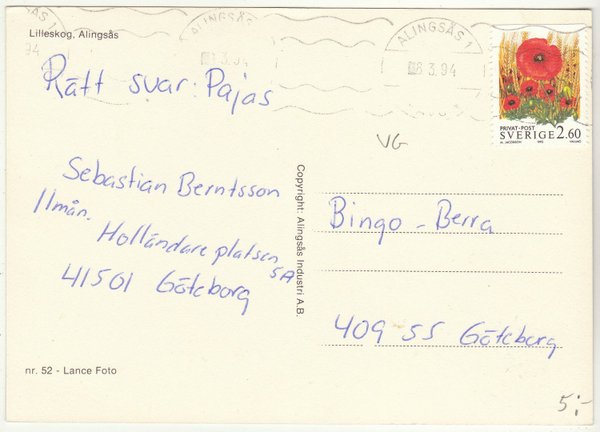 Lilleskog, Alingsås
ALINGSÅS 1
3.94
PRIVAT-POST
SVERIGE 2.60
Rätt svar: Pajas
VG
Sebastian Berntsson
11mån.
Holländareplatsen
5A
41501 Göteborg
Copyright: Alingsås Industri A.B.
Bingo-Berra
409 55 Göteborg
nr. 52 - Lance Foto
5:-